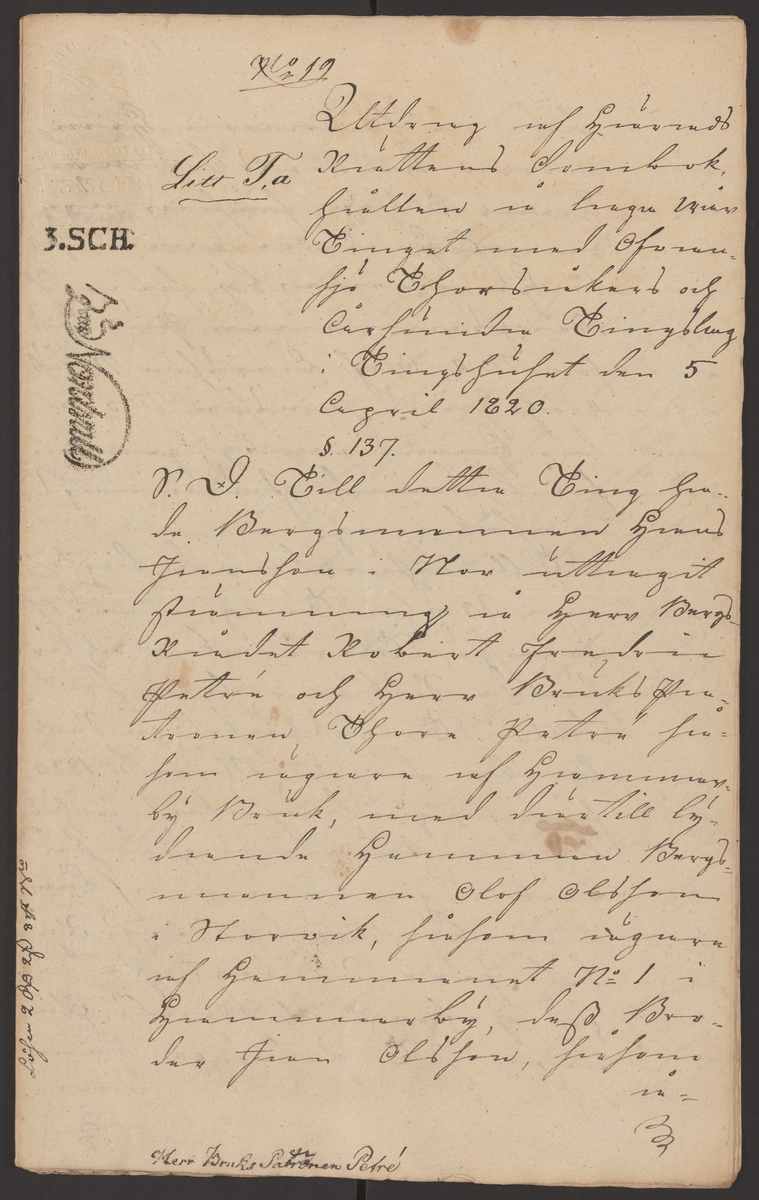 No 19
Utdrag af Härads
Litt T,a
Rättens Dombok,
hållen å laga Wår
Tinget med Ofvan-
3.SCH.
sjö Thorsåkers och
Årsunda Tingslag
i Tingshuset den 5
April 1820.
§. 137.
S. D. Till detta Ting ha-
de Bergsmannen Hans
Jansson i Nor uttagit
stämning å Herr Bergs-
Rådet Robert Fredric
Petré och Herr Bruks Pa-
tronen Thore Petré så-
som ägare af Hammar-
by Bruk, med därtill ly-
dande Hemman Bergs-
mannen Olof Olsson
i Storvik, såsom ägare
af Hemmanet No 1 i
Hammarby, dess Bro-
der Jan Olsson, såsom
ä-
Herr Bruks Patronen Petré